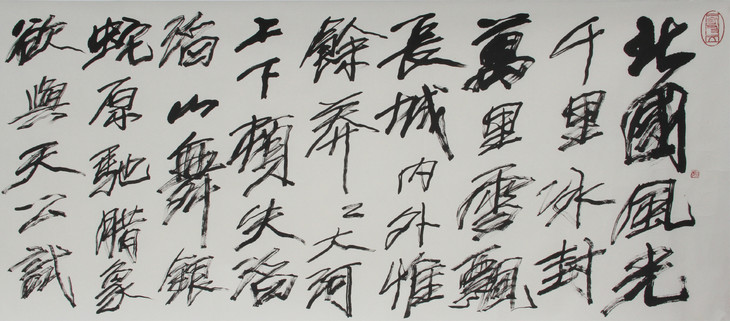 北國風光
千里冰封
萬里雪飄
長城内外惟
餘莽〻大河
上下頓失滔
滔山舞銀
蛇原馳腊象
欲與天公試